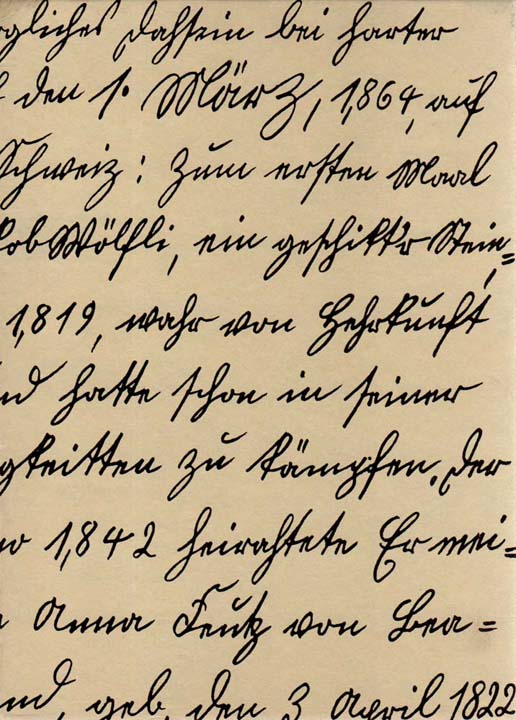 rgliches Dahsein bei harter
den 1. März, 1,864, auf
Schweiz: Zum ersten Maal
kob Wölfli, ein geschikt'r Stein,=
1,819, wahr von Hehrkunft
nd hatte schon in seiner
gkeitten zu kämpfen. Der
no 1,842 heirahtete Er mei-=
Anna Feutz von Bea=
nd, geb. den 3 April 1822